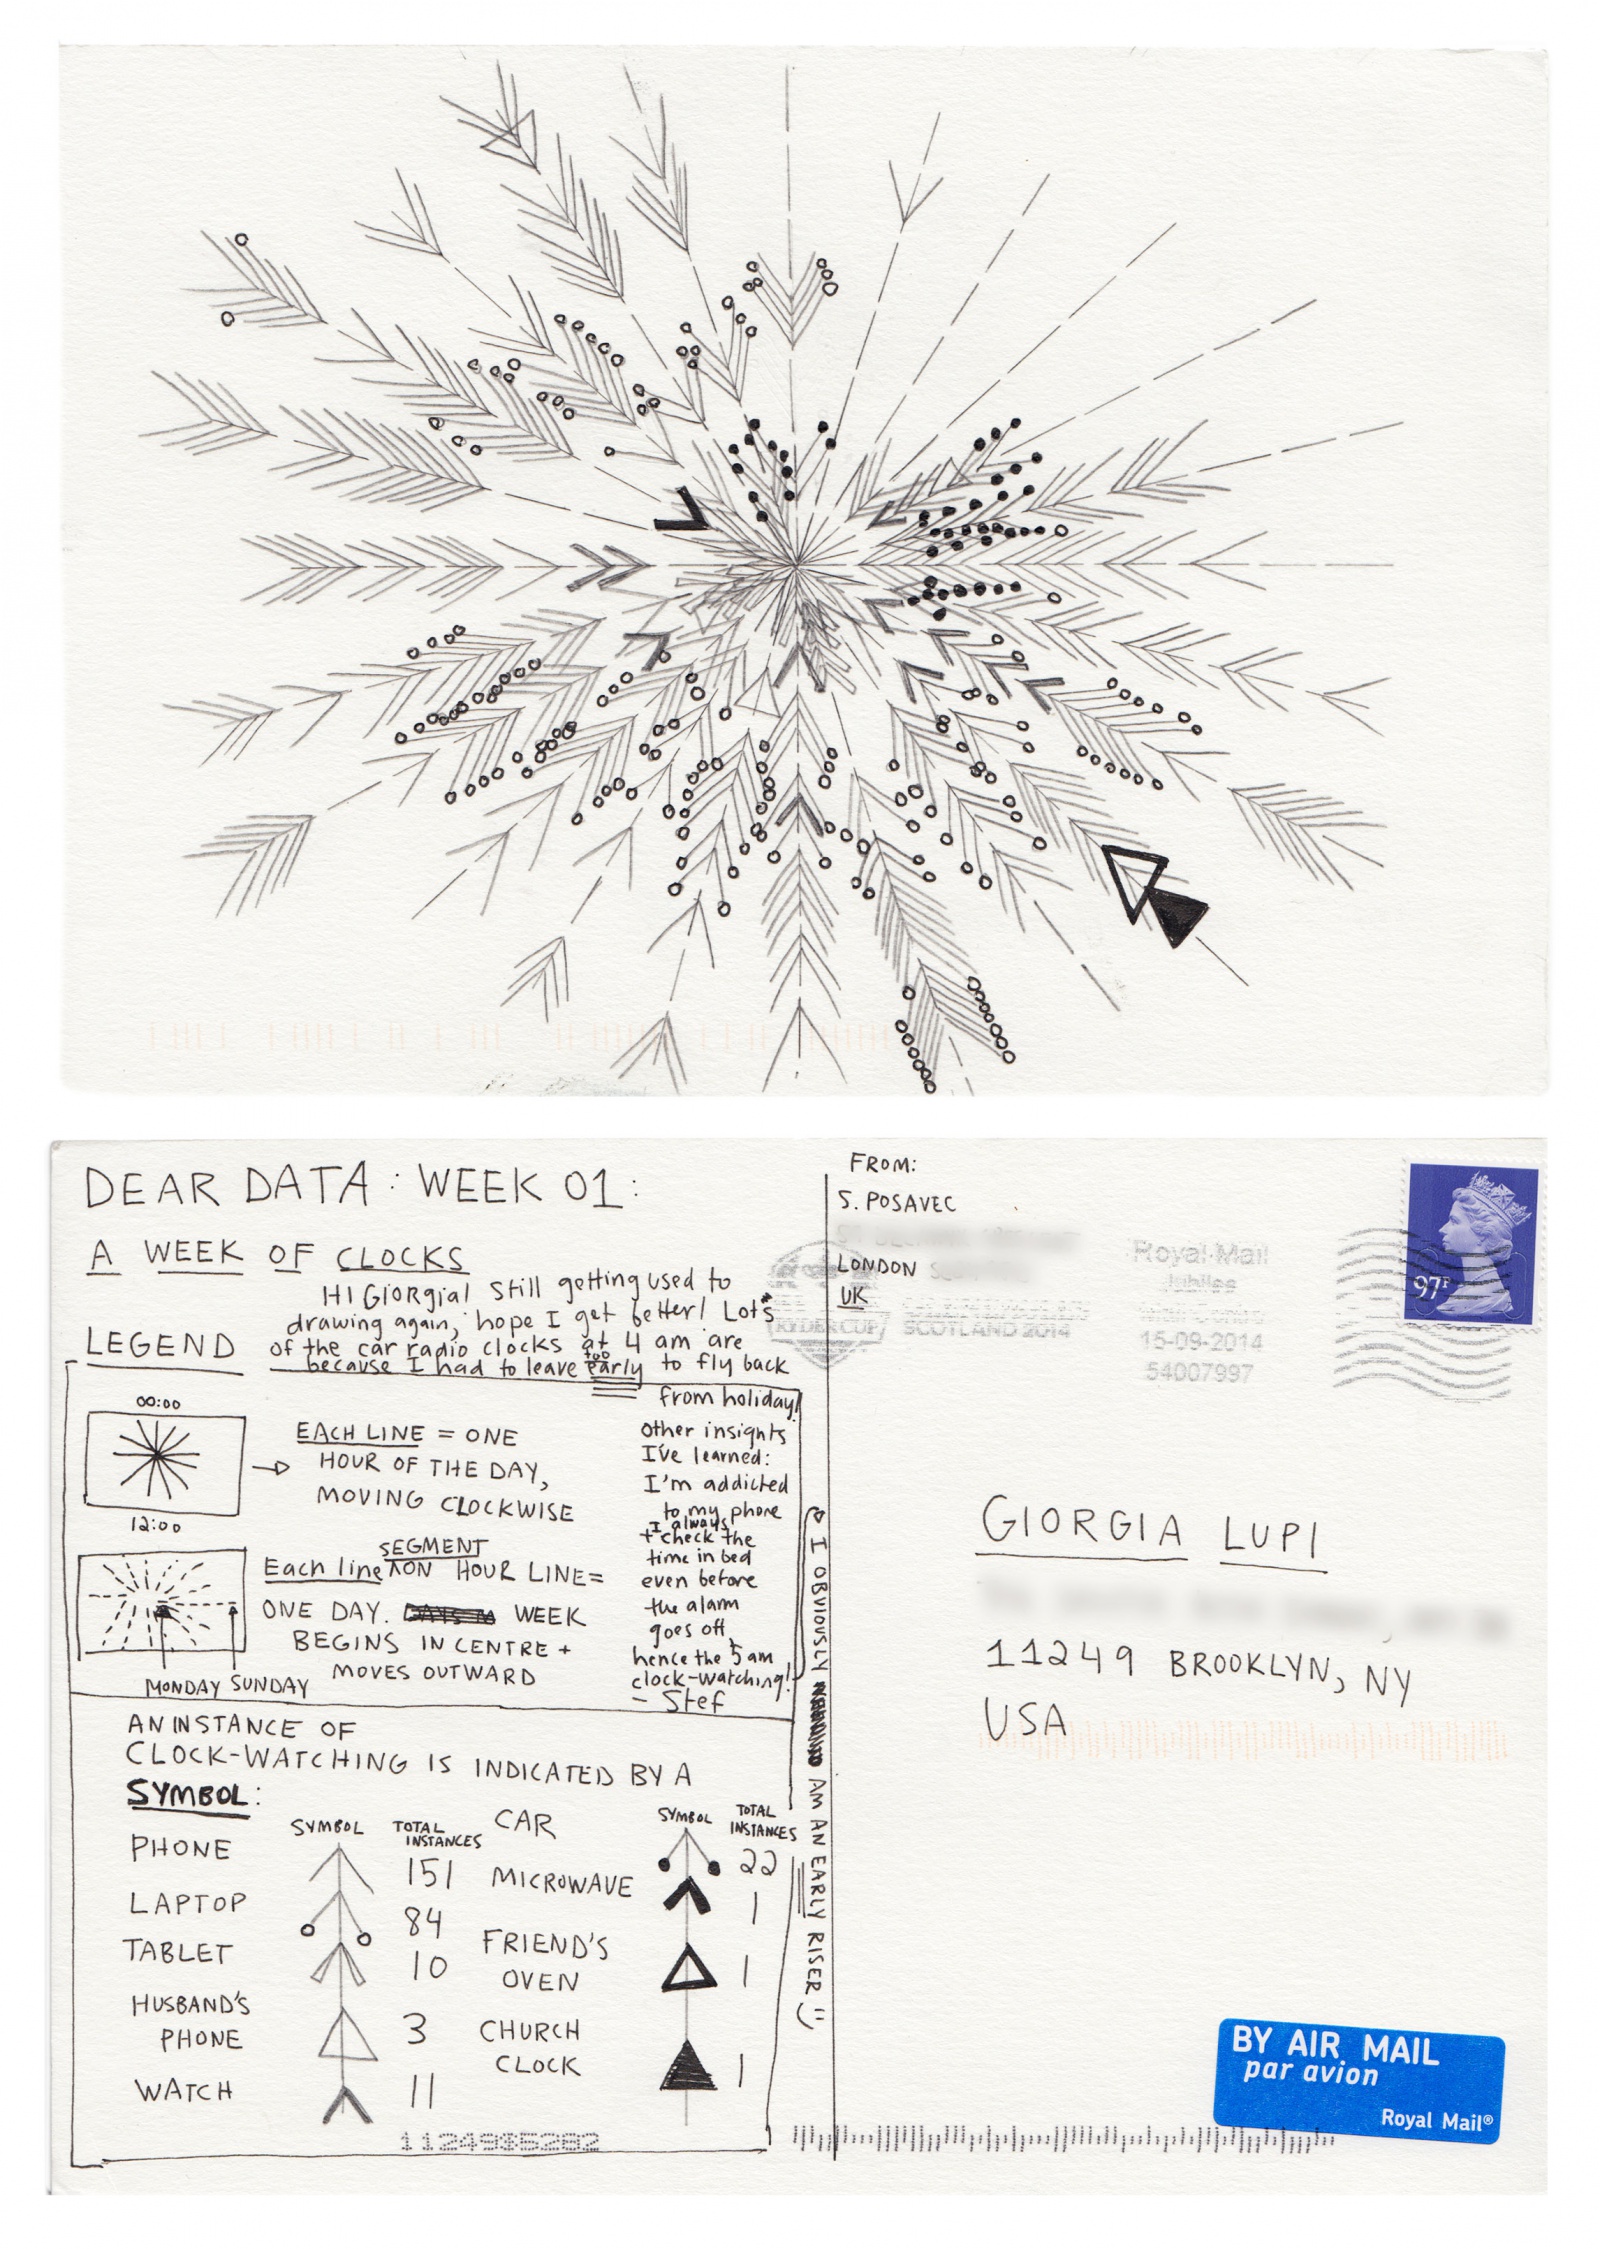 DEAR DATA: WEEK 01:
A WEEK OF CLOCKS
HI GIORGIA! Still getting used to
drawing again, hope I get better! Lots
of the car radio clocks at 4 am are
because I had to leave too early to fly back
from holiday!
Other insights
I've learned:
I'm addicted
to my phone
+ I always check the
time in bed
even before
the alarm
goes off,
hence the 5 am
clock-watching!
- Stef
I OBVIOUSLY AM AN EARLY RISER
LEGEND
00:00
12:00
EACH LINE = ONE
HOUR OF THE DAY,
MOVING CLOCKWISE
Each line SEGMENT ON HOUR LINE=
ONE DAY. WEEK
BEGINS IN CENTRE +
MOVES OUTWARD
MONDAY SUNDAY
AN INSTANCE OF
CLOCK-WATCHING IS INDICATED BY A
SYMBOL:
SYMBOL TOTAL INSTANCES
PHONE 151
LAPTOP 84
TABLET 10
HUSBAND'S
PHONE 3
WATCH 11
SYMBOL TOTAL INSTANCES
CAR 22
MICROWAVE 1
FRIEND'S
OVEN 1
CHURCH
CLOCK 1
FROM:
S. POSAVEC
LONDON
UK
RYDER CUP
SCOTLAND 2014
Royal Mail
Jubilee
Mail Centre
15-09-2014
54007997
97P
GIORGIA LUPI
11249 BROOKLYN, NY
USA
BY AIR MAIL
par avion
Royal Mail®